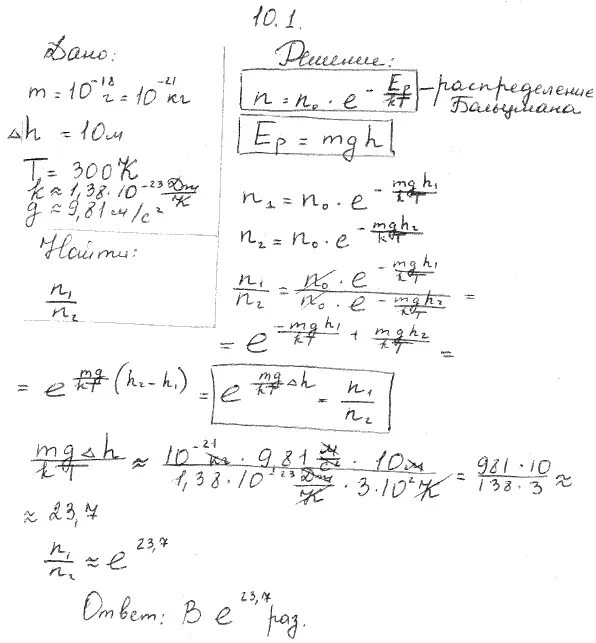 10.1.
Дано:
m = 10⁻¹⁸ г = 10⁻²¹ кг
Δh = 10 м
T = 300 K
k ≈ 1,38·10⁻²³ Дж/K
g ≈ 9,81 м/с²
Найти:
n₁/n₂
Решение:
n = n₀ · e^(-Eₚ/kT) – распределение
Больцмана
Eₚ = mgh
n₁ = n₀ · e^(-mgh₁/kT)
n₂ = n₀ · e^(-mgh₂/kT)
n₁/n₂ = (n₀ · e^(-mgh₁/kT))/(n₀ · e^(-mgh₂/kT)) =
= e^(-mgh₁/kT + mgh₂/kT) =
= e^(mg/kT (h₂-h₁)) = e^(mg/kT Δh) = n₁/n₂
mgΔh/kT ≈ (10⁻²¹ кг · 9,81 м/с² · 10 м)/(1,38·10⁻²³ Дж/K · 3·10² K) = (981·10)/(138·3) ≈
≈ 23,7
n₁/n₂ ≈ e^23,7
Ответ: В e^23,7 раз.